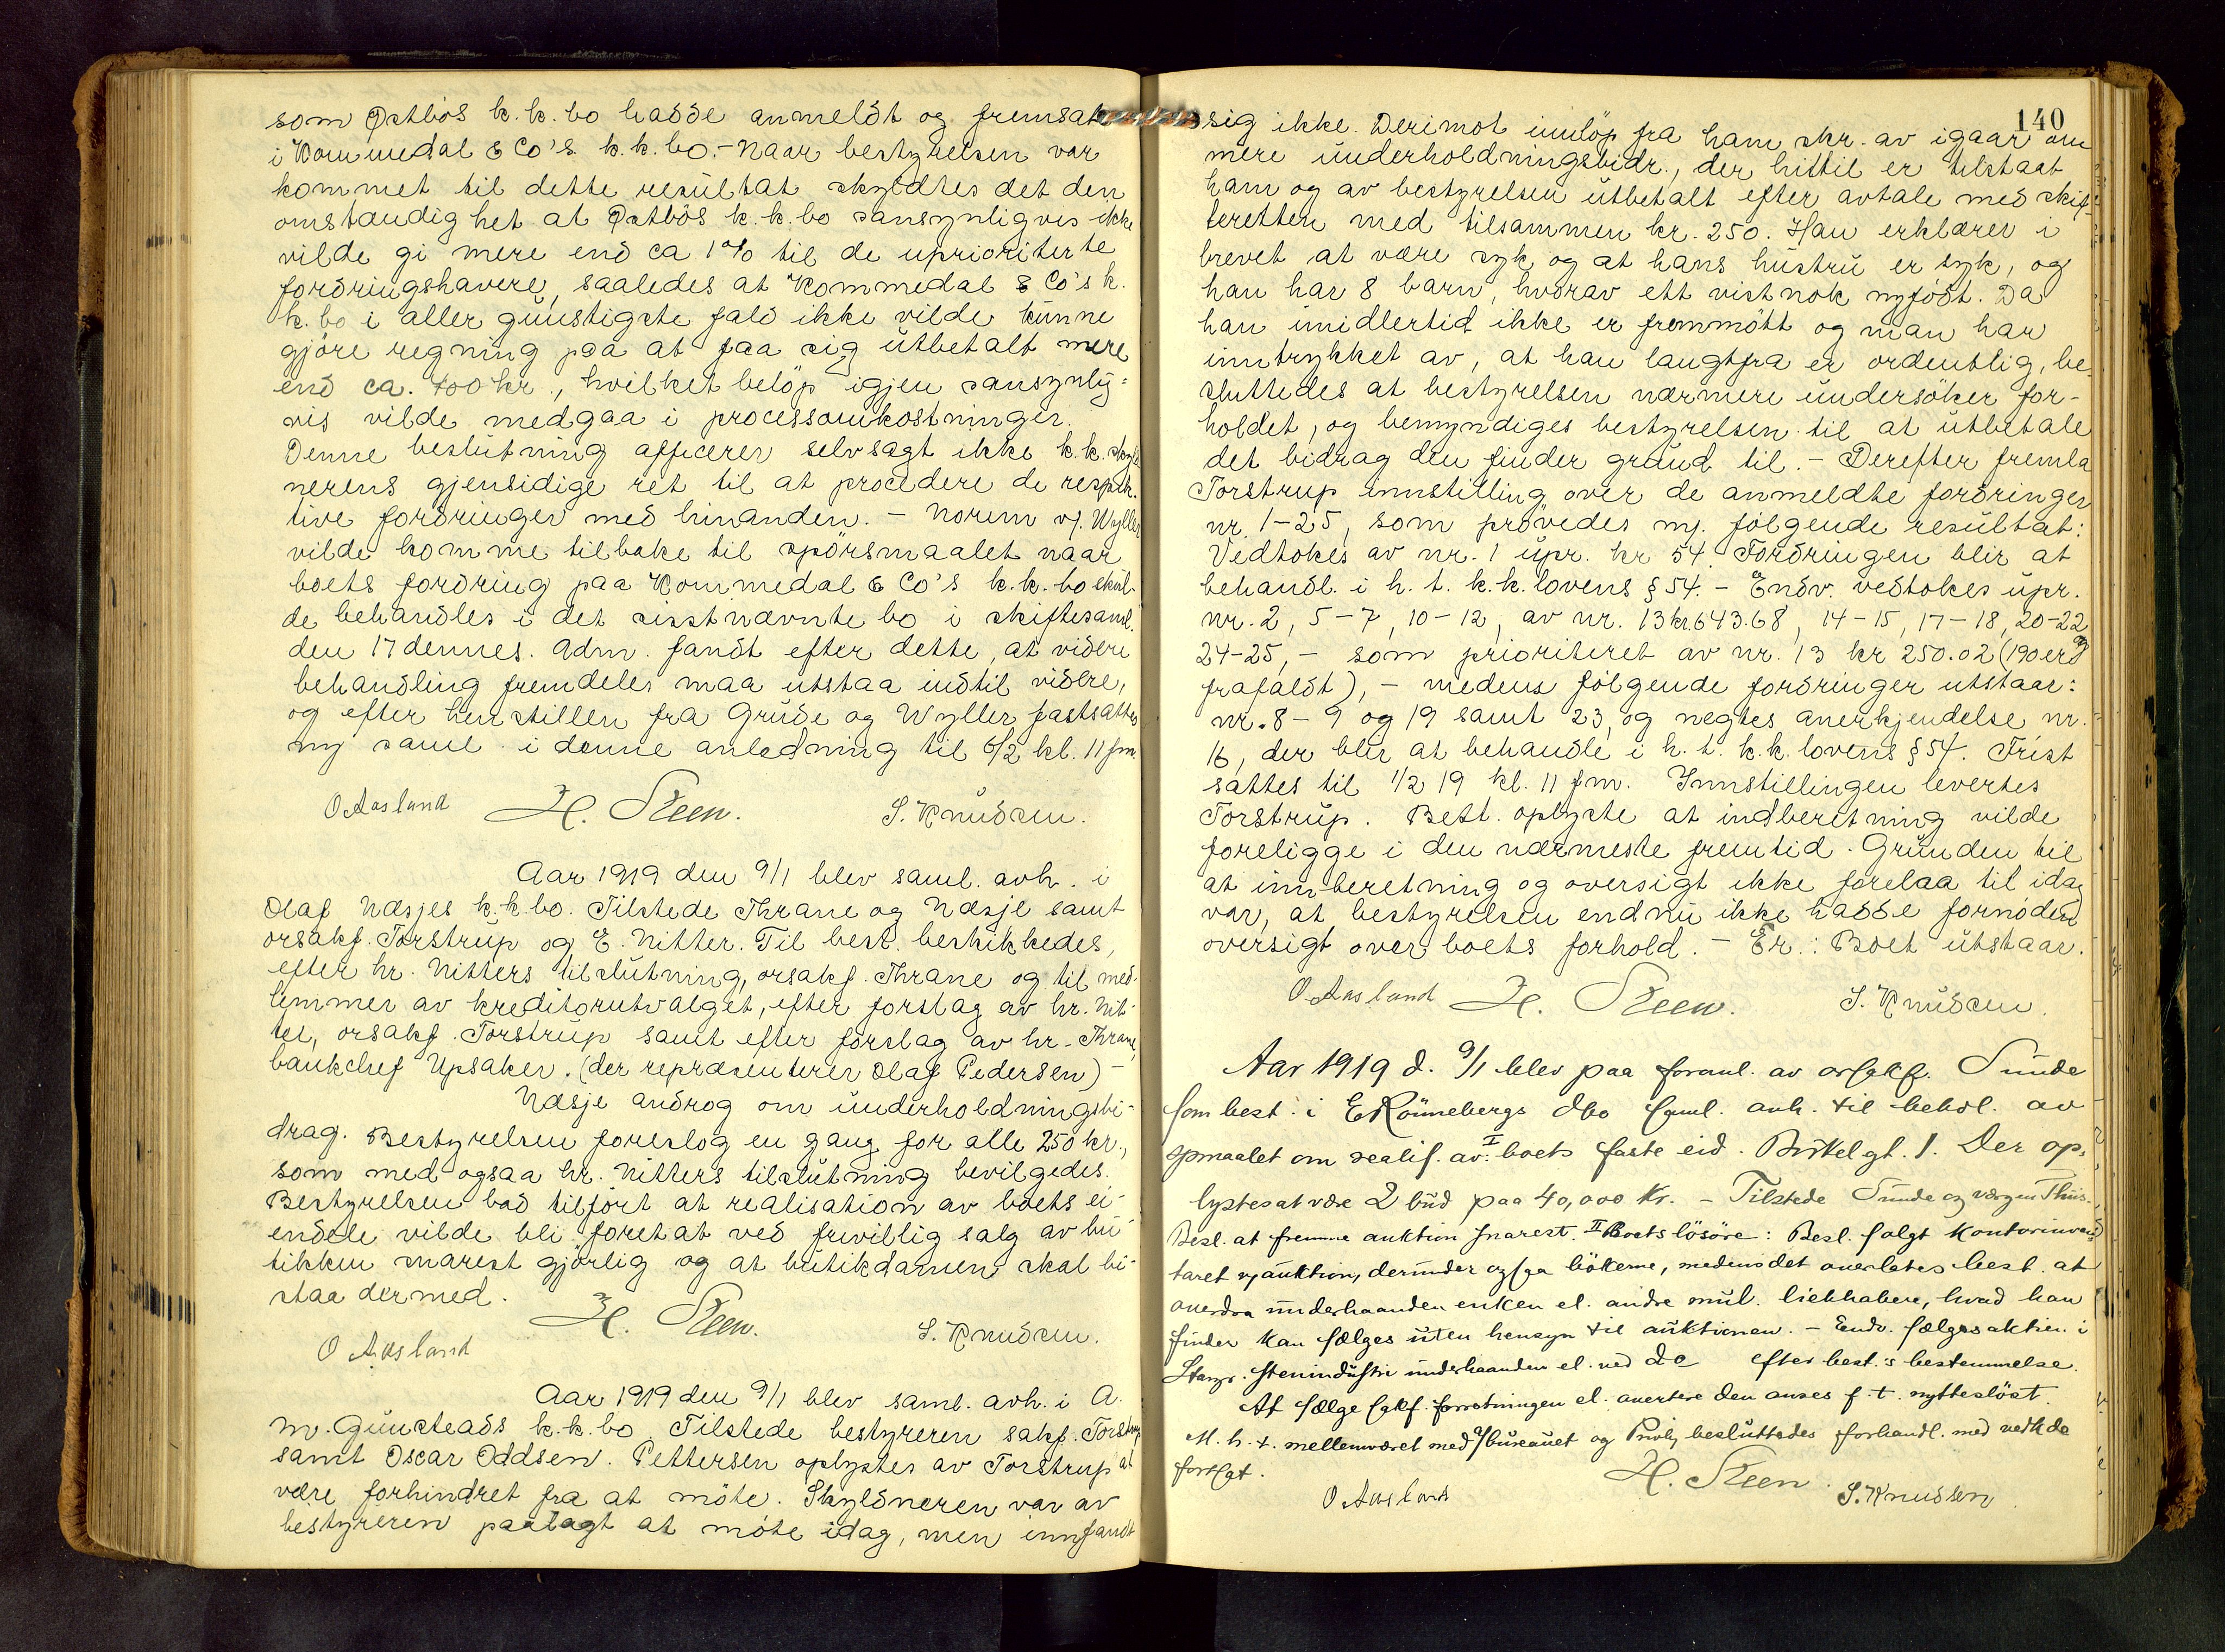 som Østbös k.k. bo hadde anmeldt og fremsat
i Kommedal & Co's. k.k. bo. - Naar bestyrelsen var
kommet til dette resultat skyldtes det den
omstændighet at Østbös k.k. bo sansynligvis ikke
vilde gi mere end ca 1% til de uprioriterte
fordringshavere, saaledes at Kommedal & Co's k.
k. bo i aller gunstigste fald ikke vilde kunne
gjöre regning paa at faa sig utbetalt mere
end ca. 400 kr., hvilket belöp igjen sansynlig=
vis vilde medgaa i processomkostninger.
Denne beslutning afficerer selvsagt ikke k.k. skyld
nerens gjensidige ret til at procedere de respek-
tive fordringer med hinanden. - Norem v/ Wyller
vilde komme tilbake til spörsmaalet naar
boets fordring paa Kommedal & Co's k.k. bo skul-
de behandles i det sisstnævnte bo i skiftesaml.
den 17 dennes. Adm. fandt efter dette, at videre
behandling fremdeles maa utstaa indtil videre,
og efter henstillen fra Grude og Wyller fastsattes
ny saml. i denne anledning til 6/2 kl. 11 fm.
O Aasland H. Steen. S. Knudsen.
Aar 1919 den 9/1 blev saml. avh. i
Olaf Næsjes k.k. bo. Tilstede Thrane og Næsje samt
orsakf. Torstrup og E. Nitter. Til best. beskikkedes,
efter hr. Nitters tilslutning, orsakf. Thrane og til med-
lemmer av kreditorutvalget, efter forslag av hr. Nit-
ter, orsakf. Torstrup samt efter forslag av hr. Thrane,
bankchef Upsaker. (der repræsenterer Olaf Pedersen) -
Næsje androg om underholdningsbi-
drag. Bestyrelsen foreslog en gang for alle 250 kr.,
som med ogsaa hr. Nitters tilslutning bevilgedes.
Bestyrelsen bad tilfört at realisation av boets ei-
endele vilde bli foretat ved frivillig salg av bu-
tikken snarest gjörlig og at butikdamen skal bi-
staa dermed.
O Aasland H. Steen. S. Knudsen.
Aar 1919 den 9/1 blev saml. avh. i A.
M. Gunsteads k.k. bo. Tilstede bestyreren sakf. Torstrup
samt Oscar Oddsen. Pettersen oplystes av Torstrup at
være forhindret fra at möte. Skyldneren var av
bestyreren paalagt at möte idag, men innfandt
140
sig ikke. Derimot innlöp fra ham skr. av igaar om
mere underholdningsbidr., der hittil er tilstaat
ham og av bestyrelsen utbetalt efter avtale med skif-
teretten med tilsammen kr. 250. Han erklærer i
brevet at være syk og at hans hustru er syk, og
han har 8 barn, hvorav ett vistnok nyfödt. Da
han imidlertid ikke er fremmött og man har
inntrykket av, at han langtfra er ordentlig, be-
sluttedes at bestyrelsen nærmere undersöker for-
holdet, og bemyndiges bestyrelsen til at utbetale
det bidrag den finder grund til. - Derefter fremla
Torstrup innstilling over de anmeldte fordringer
nr. 1-25, som prövedes m. fölgende resultat:
Vedtokes av nr. 1 upr. kr 54. Fordringen blir at
behandl. i h. t. k.k. lovens § 54. - Endv. vedtokes upr.
nr. 2, 5-7, 10-12, av nr. 13 kr. 643.68, 14-15, 17-18, 20-22 og
24-25, - som prioriteret av nr. 13 kr 250.02 (190 er
frafaldt), - medens fölgende fordringer utstaar:
nr. 8-9 og 19 samt 23, og negtes anerkjendelse nr.
16, der blir at behandle i h. t. k.k. lovens § 54. Frist
sattes til 1/2 19 kl. 11 fm. Innstillingen levertes
Torstrup. Best. oplyste at indberetning vilde
foreligge i den nærmeste fremtid. Grunden til
at innberetning og oversigt ikke forelaa til idag
var, at bestyrelsen endnu ikke hadde fornöden
oversigt over boets forhold. - Er.: Boet utstaar.
O. Aasland H. Steen. S. Knudsen.
Aar 1919 d. 9/1 blev paa foranl. av orsakf. Sunde
som best. i E Rönnebergs dbo saml. avh. til behdl. av
spmaalet om realis. av: I boets faste eid. Birkelgt. 1. Der op-
lystes at være 2 bud paa 40,000 kr. - Tilstede Sunde og værgen Thiis.
Besl. at fremme auktion snarest. II Boets lösöre: Besl. solgt kontorinven-
taret v/ auktion, derunder ogsaa bökerne, medens det overlates best. at
overdra underhaanden enken el. andre mul. liebhabere, hvad han
finder kan sælges uten hensyn til auktionen. - Endv. sælges aktier i
Stavgr. Stenindustri underhaanden el. ved do efter best.s bestemmelse.
At sælge sakf. forretningen el. avertere den anses f. t. nytteslöst.
M. h. t. mellemværet med byraauet og besluttedes forhandl. med vedk de
fortsat.
O Aasland H. Steen. S. Knudsen.